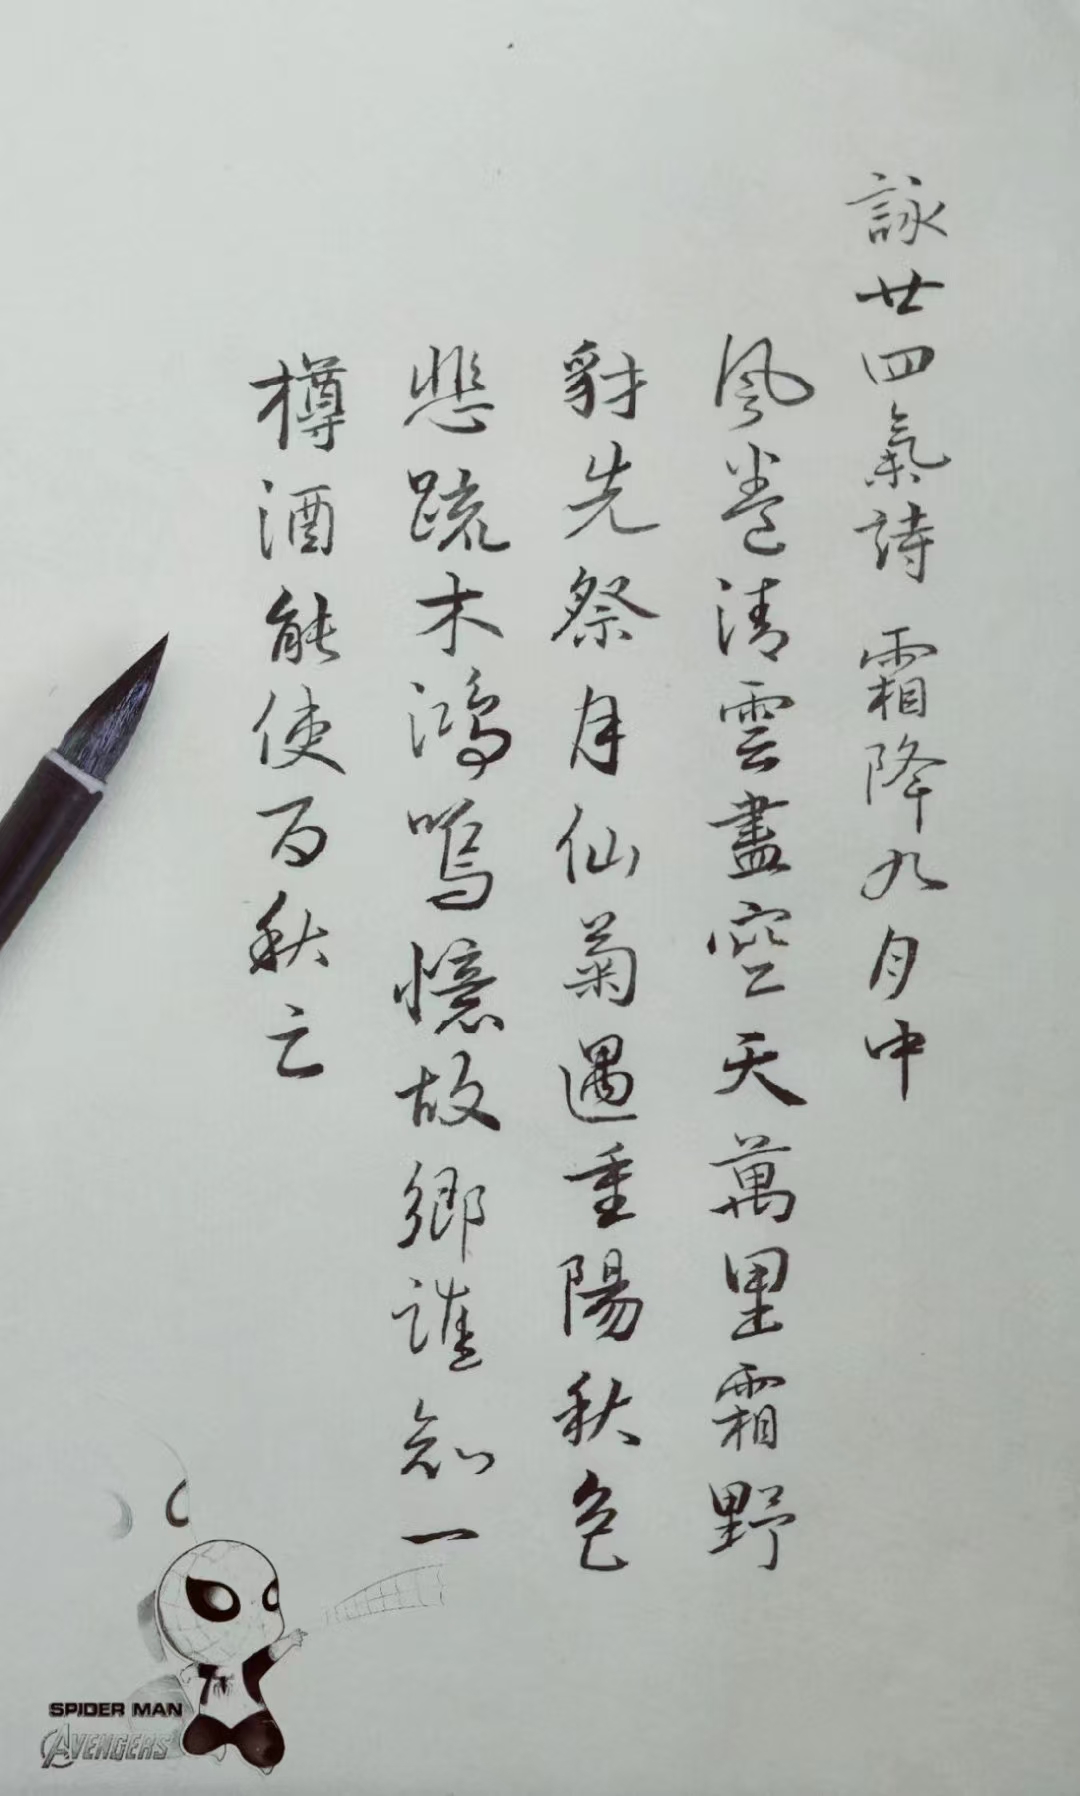 詠廿四氣詩 霜降九月中
風卷清雲盡空天萬里霜野
豺先祭月仙菊遇重陽秋色
悲疏木鴻鳴憶故鄉誰知一
樽酒能使百秋亡
SPIDER MAN
AVENGERS